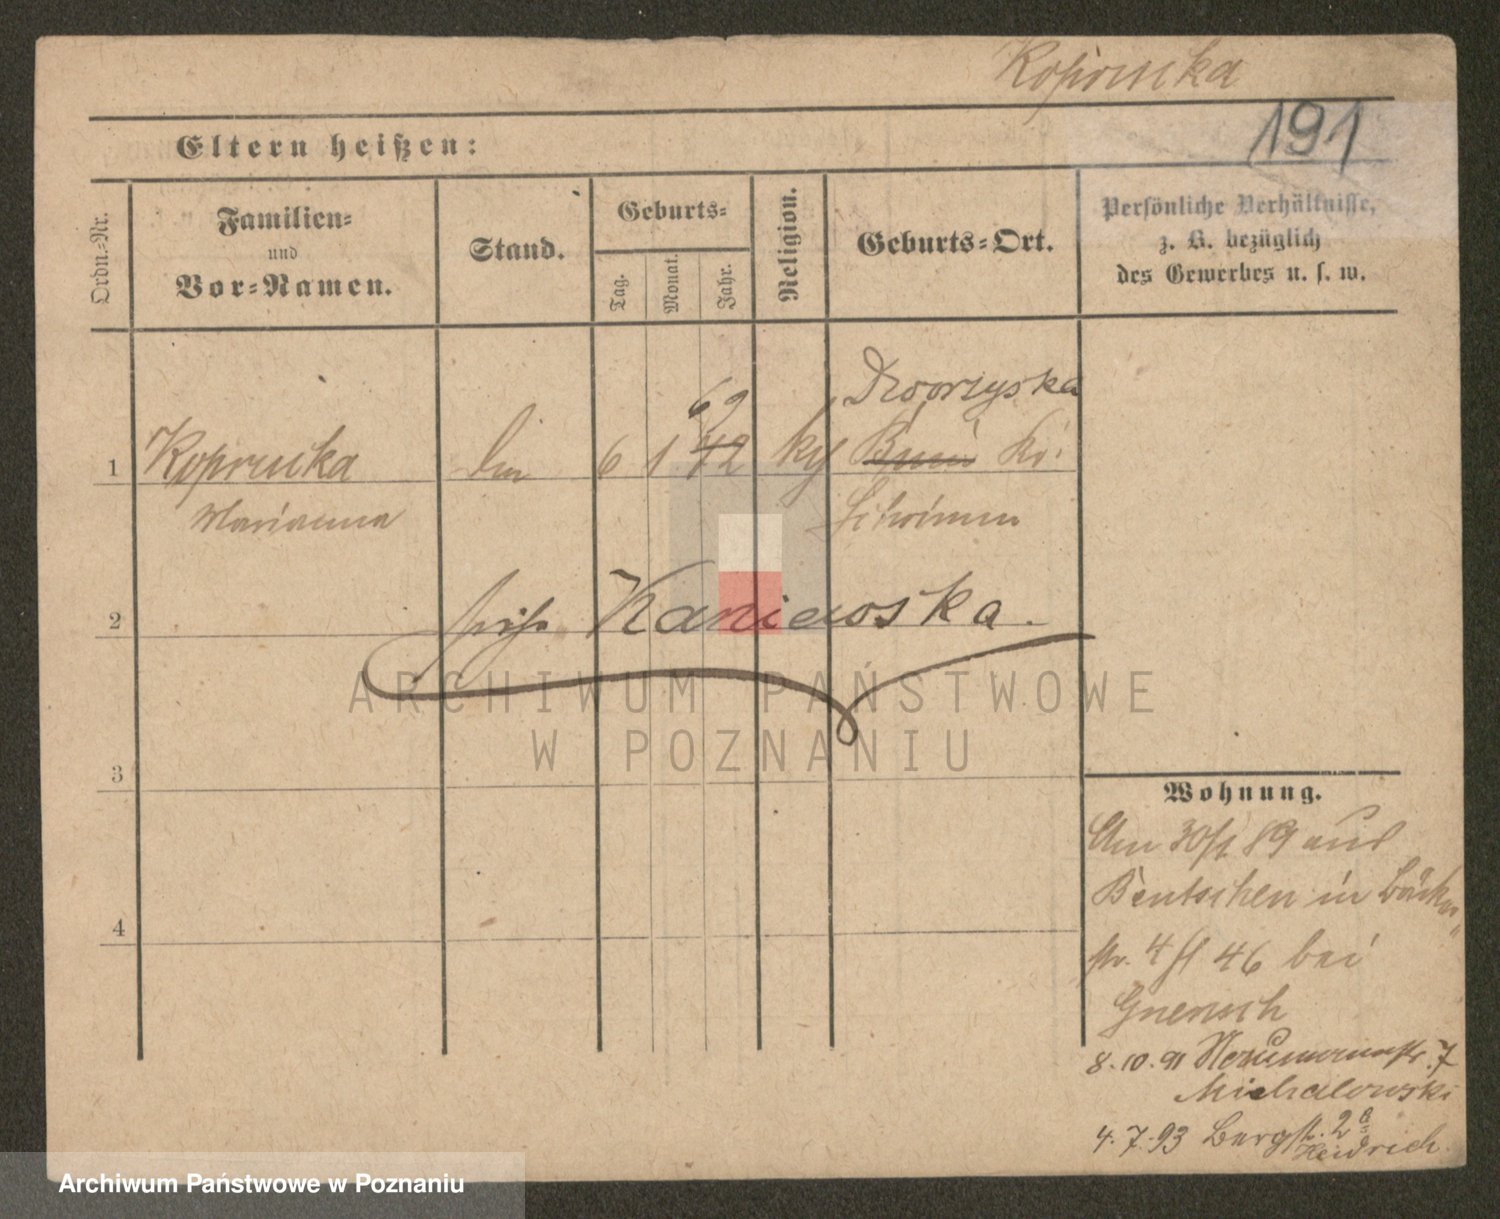 Koprucka
191
Eltern heißen:
Ordn.-Nr.
Familien-
und
Vor-Namen.
Stand.
Geburts-
Tag.
Monat.
Jahr.
Religion.
Geburts-Ort.
Persönliche Verhältnisse,
z. B. bezüglich
des Gewerbes u. s. w.
Dworzyska
69
1 Koprucka 6 1 42
Marianna Schrimm
2 siehe Kaniewska.
ARCHIWUM PAŃSTWOWE
W POZNANIU
3
Wohnung.
Am 30/1 89 aus
Bentschen in Bäcker
4
str. 4 46 bei
Gnensch
8.10.91 Naumannstr. 7
Michalowski
4.7.93 Bergstr. 2a
Heidrich.
Archiwum Państwowe w Poznaniu